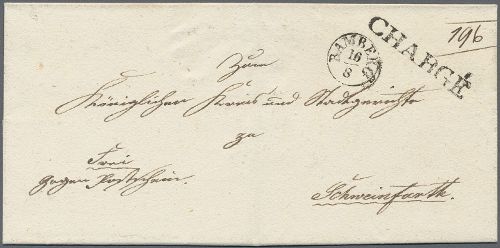 196
CHARGÉ.
BAMBERG
16
8
Zum
Königlichen Kreis und Stadtgerichte
zu
Frei
gegen Postschein.
Schweinfurth.